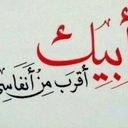 أبيك
أقرب مِن أنفاسِي